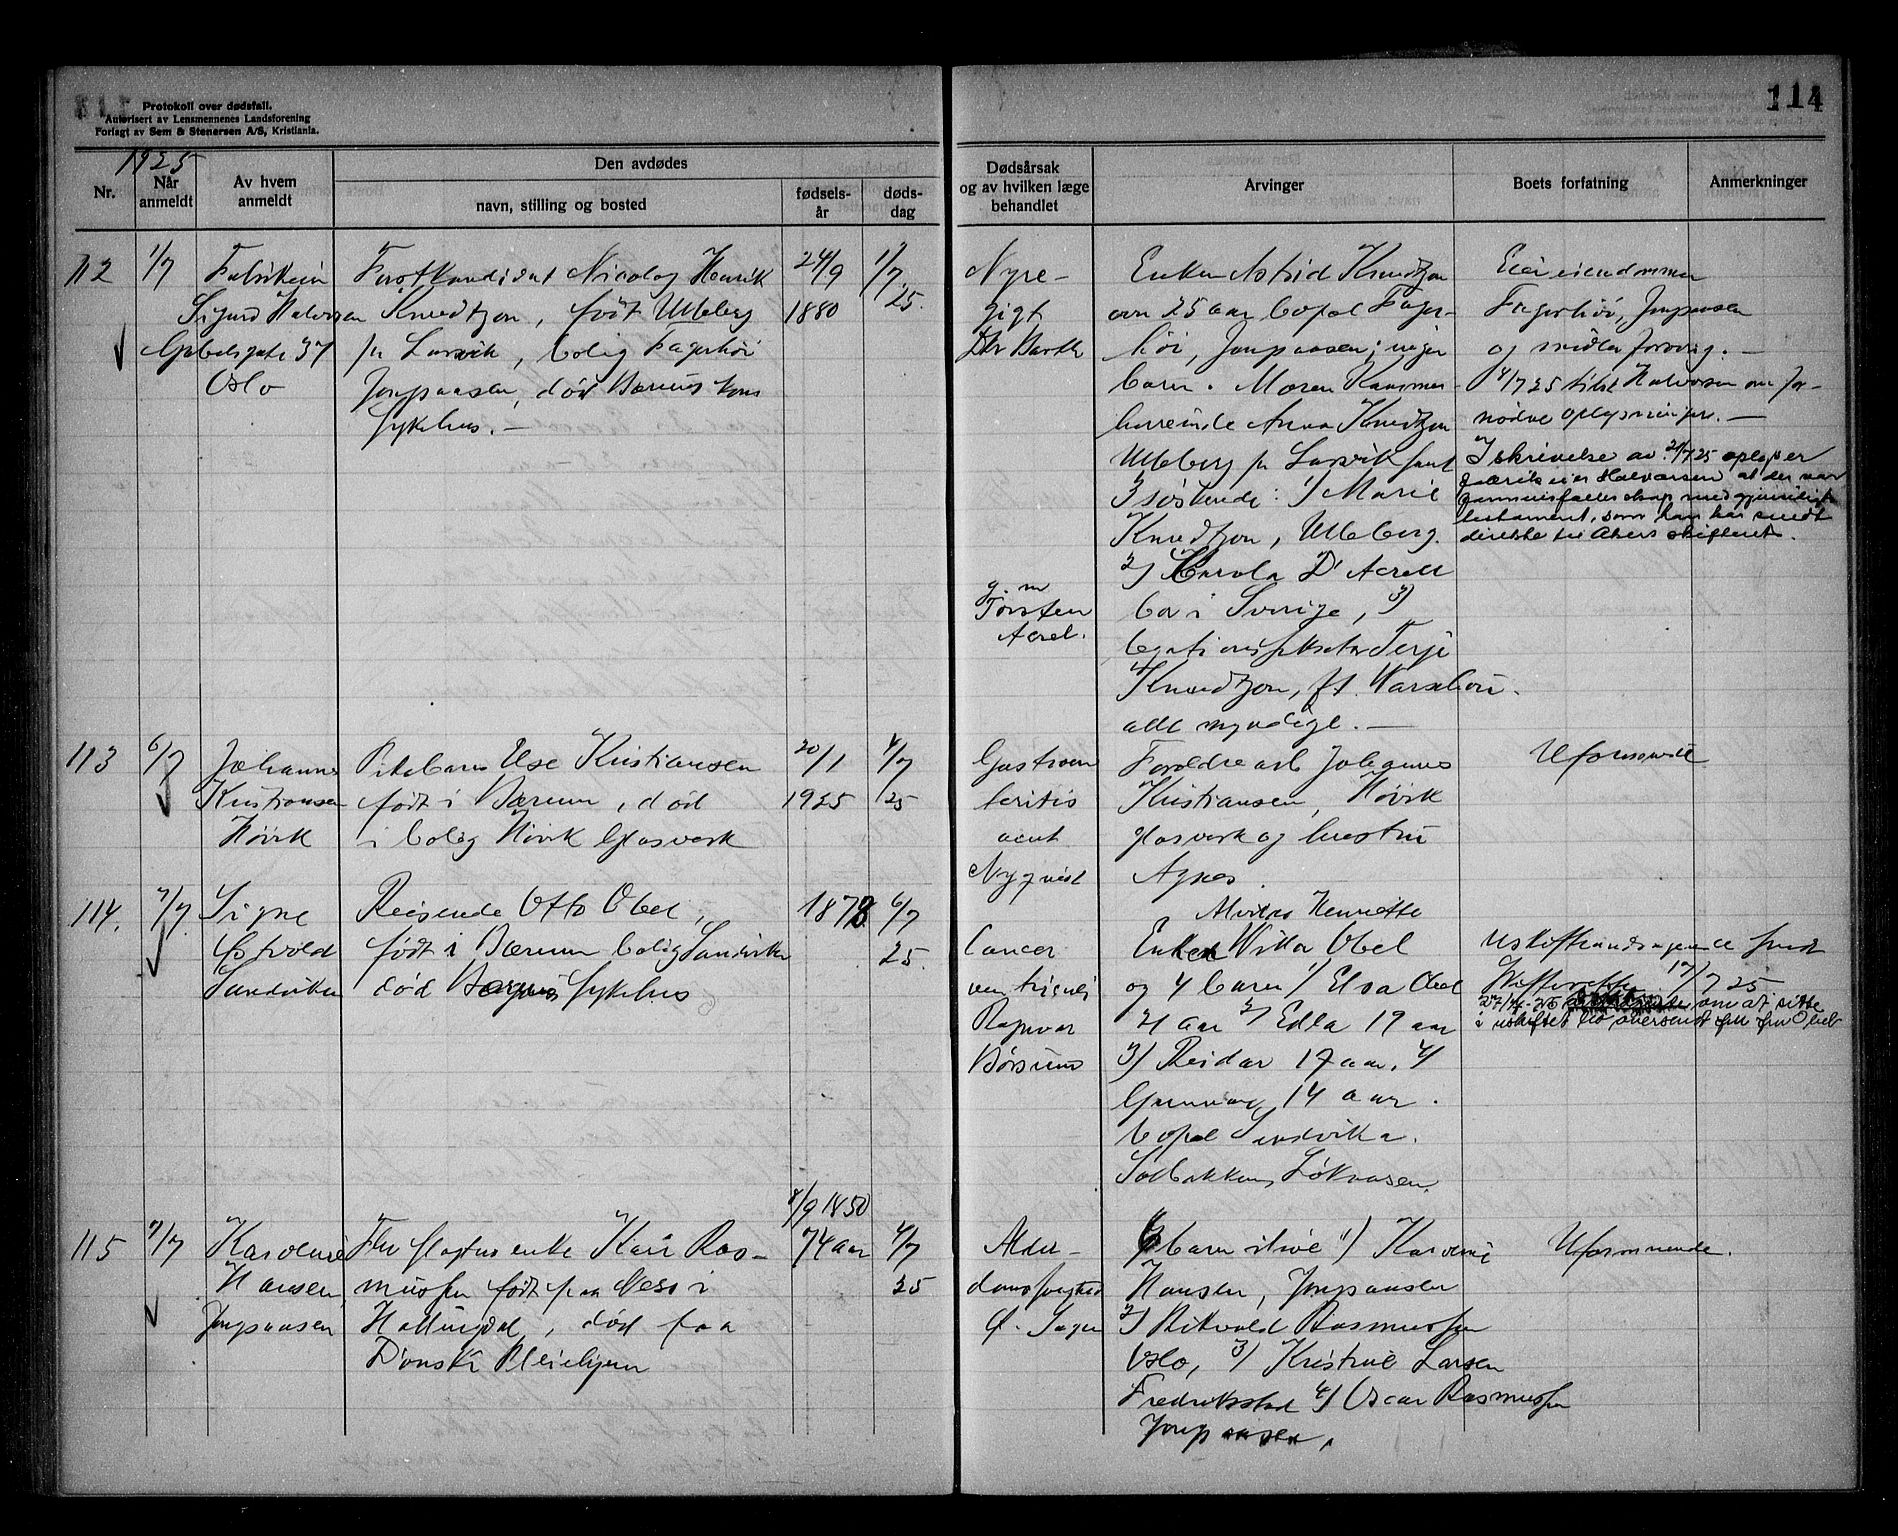 Protokoll over dødsfall.
Autorisert av Lensmennenes Landsforening
Forlagt av Sem & Stenersen A/S, Kristiania.
114
1925
Nr.
Når anmeldt
Av hvem anmeldt
Den avdødes
navn, stilling og bosted
fødsels-år
døds-dag
Dødsårsak og av hvilken læge behandlet
Arvinger
Boets forfatning
Anmerkninger
112
1/7
Fabrikeier
Sigurd Halvorsen
Gabelsgate 37
Oslo
Forstkandidat Nicolay Henrik
Knudtzon, født Ulleberg
pr Larvik, bolig Fagerhöi
Jongsaasen, död Bærums kom
sykehus. —
24/9
1880
1/7
25.
Nyre-
gigt
Dr Barth
Enken Astrid Knudtzon
over 25 aar bopæl Fager-
höi, Jongsaasen; ingen
barn. Moren Kammer-
herreinde Anna Knudtzon
Ulleberg pr Larvik samt
3 søskende: 1) Marie
Knudtzon, Ulleberg.
2) Carola D' Acrell
bor i Sverige, 3)
legationssekretær Terje
Knudtzon, ft. Warschau.
alle myndige. —
g. m
Torsten
Acrel.
Eier eiendommen
Fagerhöi, Jongsaasen
og midler forøvrig. —
4/7 25 tilst Halvorsen om for-
nødne oplysninger. —
I skrivelse av 21/7 25 oplyser
fabrikeier Halvorsen at der var
formuesfællesskap med gjensidig
testament, som han har sendt
direkte til Akers skifteret.
113
6/7
Johannes
Kristiansen
Hövik
Pikebarn Else Kristiansen
født i Bærum, död
i bolig Hövik Glasverk
20/1
1925
4/7
25
Gastroen
teritis
acut
Nyqvist
Foreldre arb Johannes
Kristiansen, Hövik
glasverk og hustru
Agnes.
Uformuende
114.
7/7
Signe
Østvold
Sandviken
Reisende Otto Obel,
født i Bærum bolig Sandviken
död Bærums sykehus
1878
6/7
25
Cancer
ventriculi
Ragnvar
Börsum
Alvilda Henriette
Enken Willa Obel
og 4 barn 1) Elsa Obel
21 aar 2) Edla 19 aar
3) Reidar 17 aar. 4)
Gunnvor 14 aar.
bopæl Sandvika.
Solbakken, Lökeaasen.
Uskifteandragende sendt
Skifteretten 17/7 25
27/7-25 om at sitte
i uskiftet bo oversendt fra fru Obel
115
7/7
Karoline
Hansen,
Jongsaasen
Flv slagters enke Kari Ras-
mussen født paa Nes i
Hallingdal, död paa
Dønski Pleiehjem
8/9 1850
74 aar
4/7
25
Alder-
domssvaghet
Ø. Sagen
barn i live 1) Karoline
Hansen, Jongsaasen
2) Rikvald Rasmussen
Oslo, 3) Kristine Larsen
Fredrikstad 4) Oscar Rasmussen
Jongsaasen.
Uformuende.